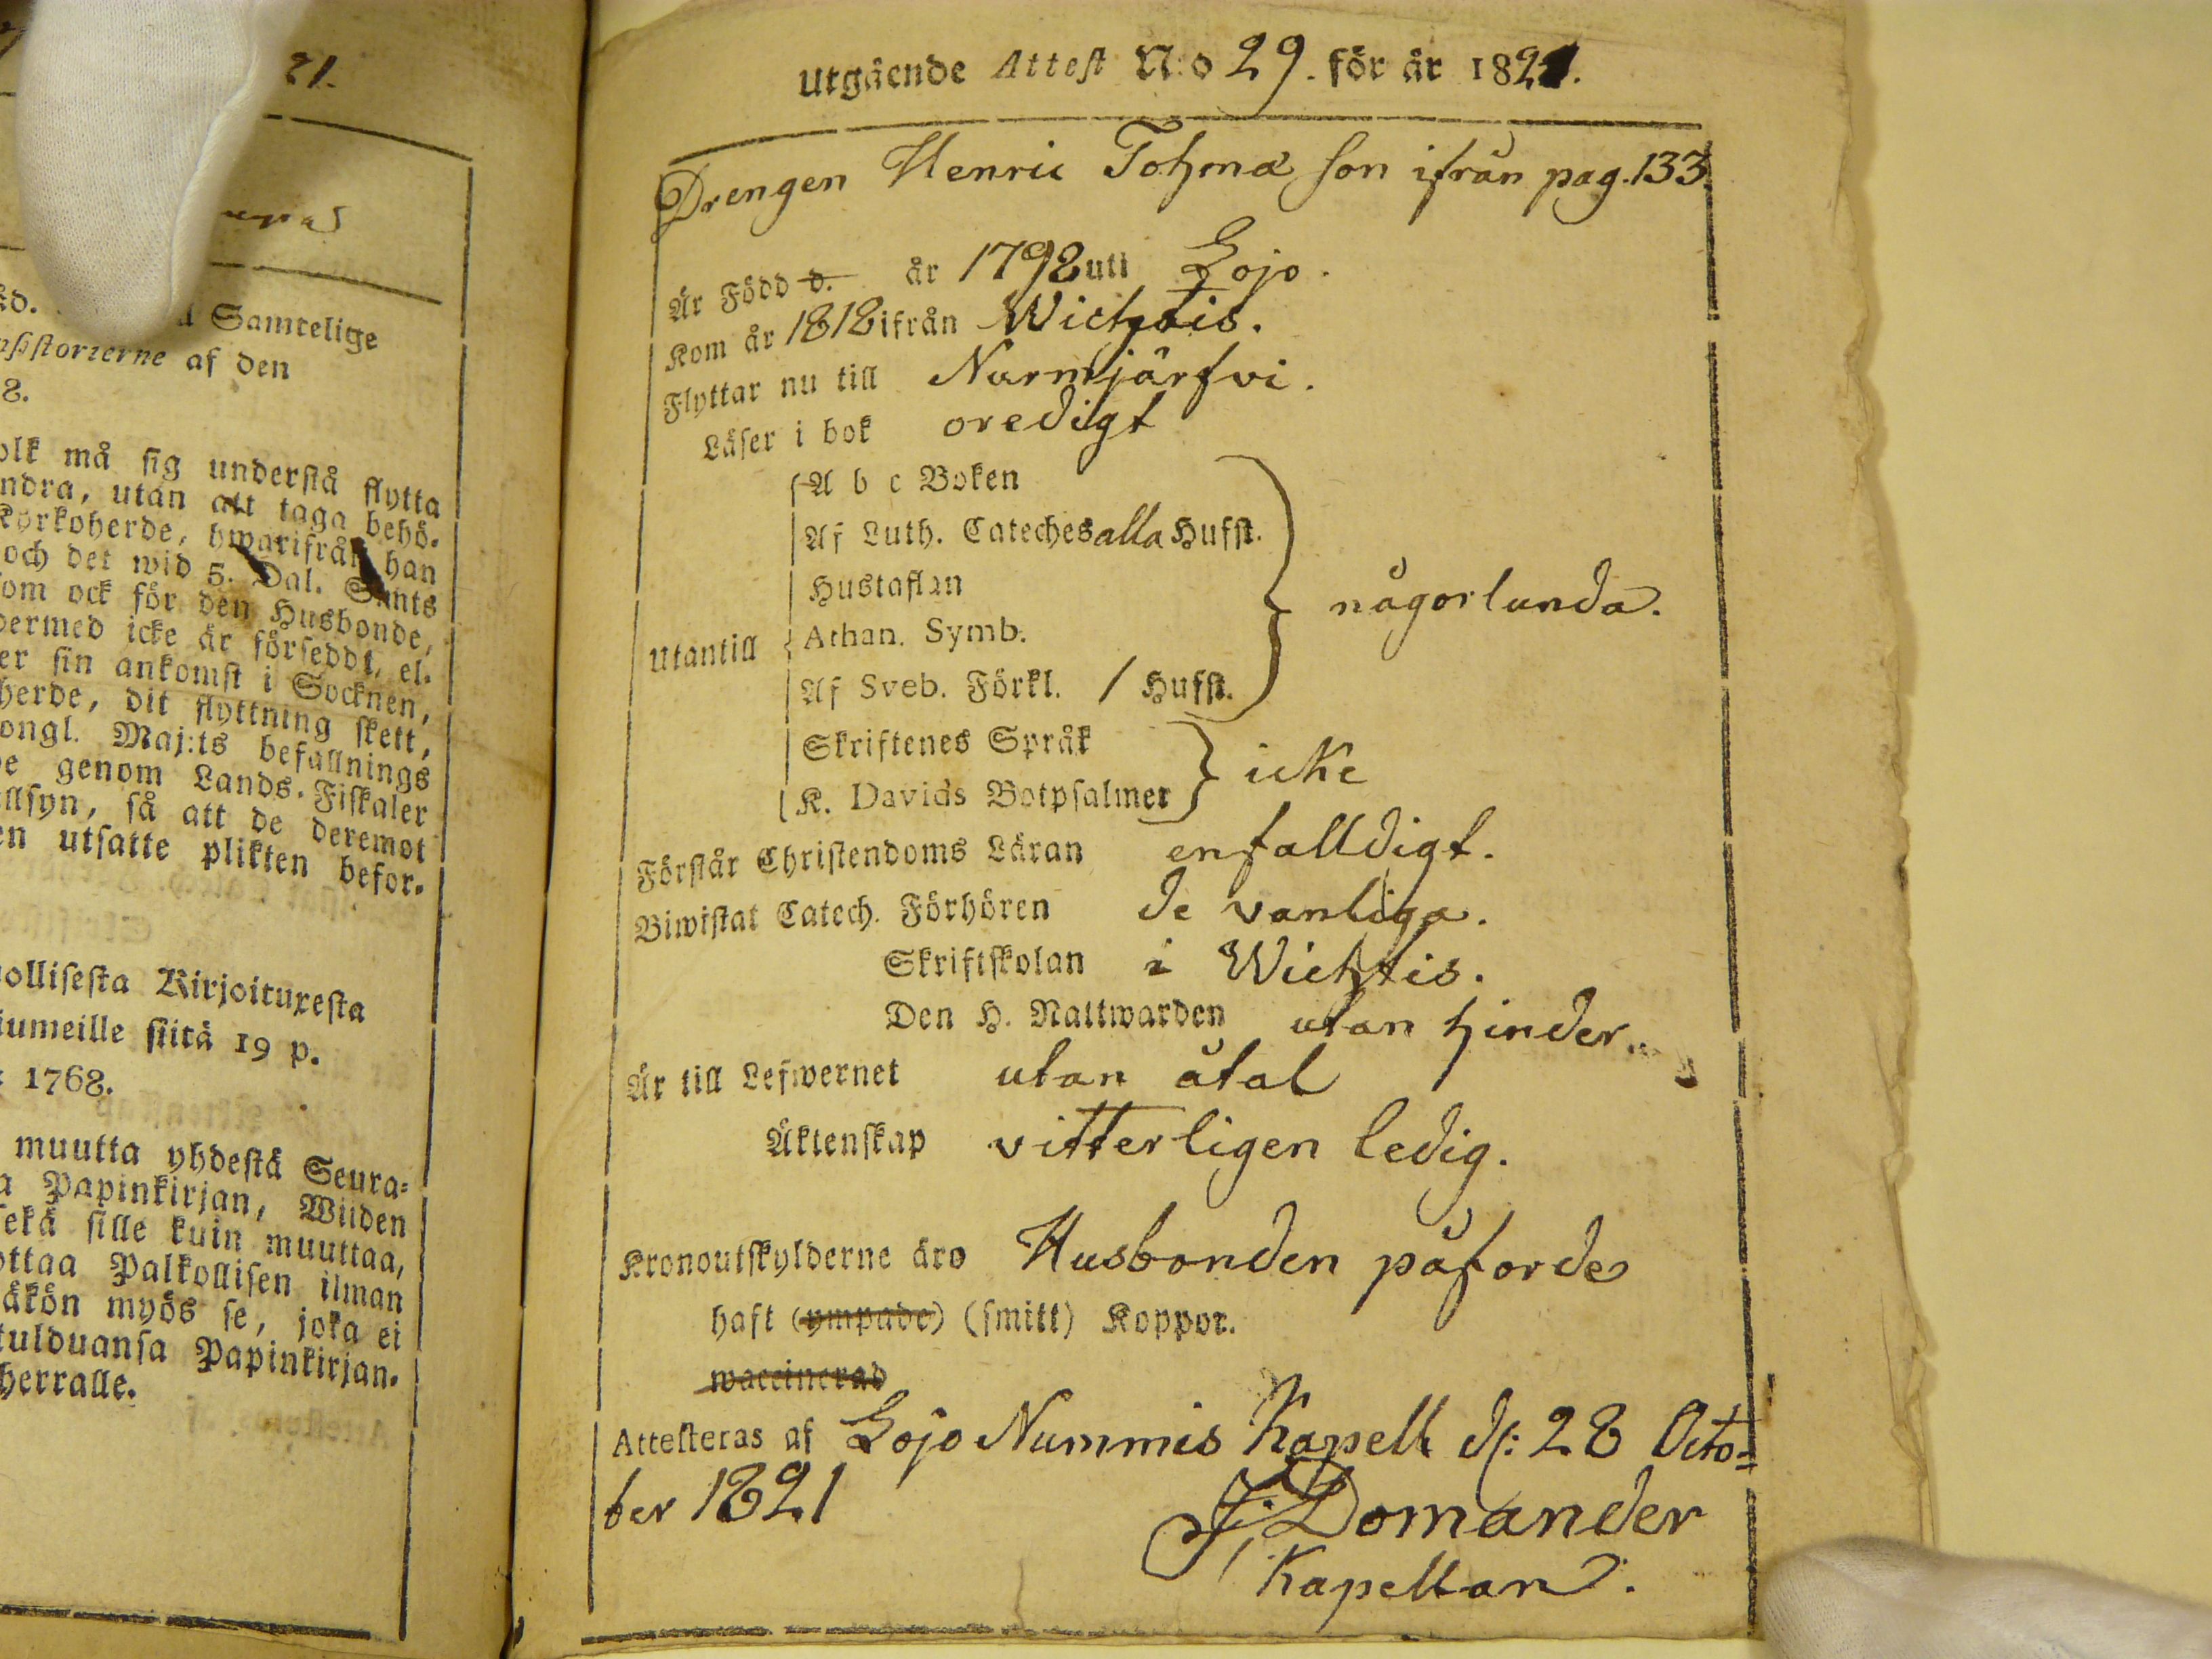 21.
Samtelige
storierne af den
8.
olk må sig understå flytta
ndra, utan att taga behö-
Kyrkoherde, hwarifrån han
och det wid 5. Dal. S:mts
om ock för den Husbonde,
dermed icke är försedt, el-
er sin ankomst i Socknen,
herde, dit flyttning skett,
ongl. Maj:ts befallnings
e genom Lands-Fiskaler
llsyn, så att de deremot
en utsatte plikten befor-
ollisesta Kirjoituxesta
iumeille siitä 19 p.
1768.
muutta yhdestä Seura-
a Papinkirjan, Wiiden
sekä sille kuin muuttaa,
ottaa Palkollisen ilman
äkön myös se, joka ei
tulduansa Papinkirjan-
herralle.
Utgående Attest N:o 29. för år 1821.
Drengen Henric Tohmæ son ifrån pag. 133.
Är Född d. år 1798 uti Lojo.
Kom år 1818 ifrån Wichtis.
Flyttar nu till Nurmijärfvi.
Läser i bok oredigt
A b c Boken
Af Luth. Catches alla Hufst.
Hustaflan
någorlunda.
Utantill
Athan. Symb.
Af Sveb. Förkl. / Hufst.
Skriftenes Språk
icke
K. Davids Botpsalmer
Förstår Christendoms Läran enfalldigt.
Biwistat Catech. Förhören de vanliga.
Skriftskolan i Wichtis.
Den H. Nattwarden utan hinder..
Är till Lefwernet utan åtal
Äktenskap vitterligen ledig.
Kronoutskylderne äro Husbonden påforde
haft (ympade) (smitt) Koppor.
waccinerad
Attesteras af Lojo Nummis Kapell d: 28 Octo=
ber 1821
J: Domander
Kapellan.